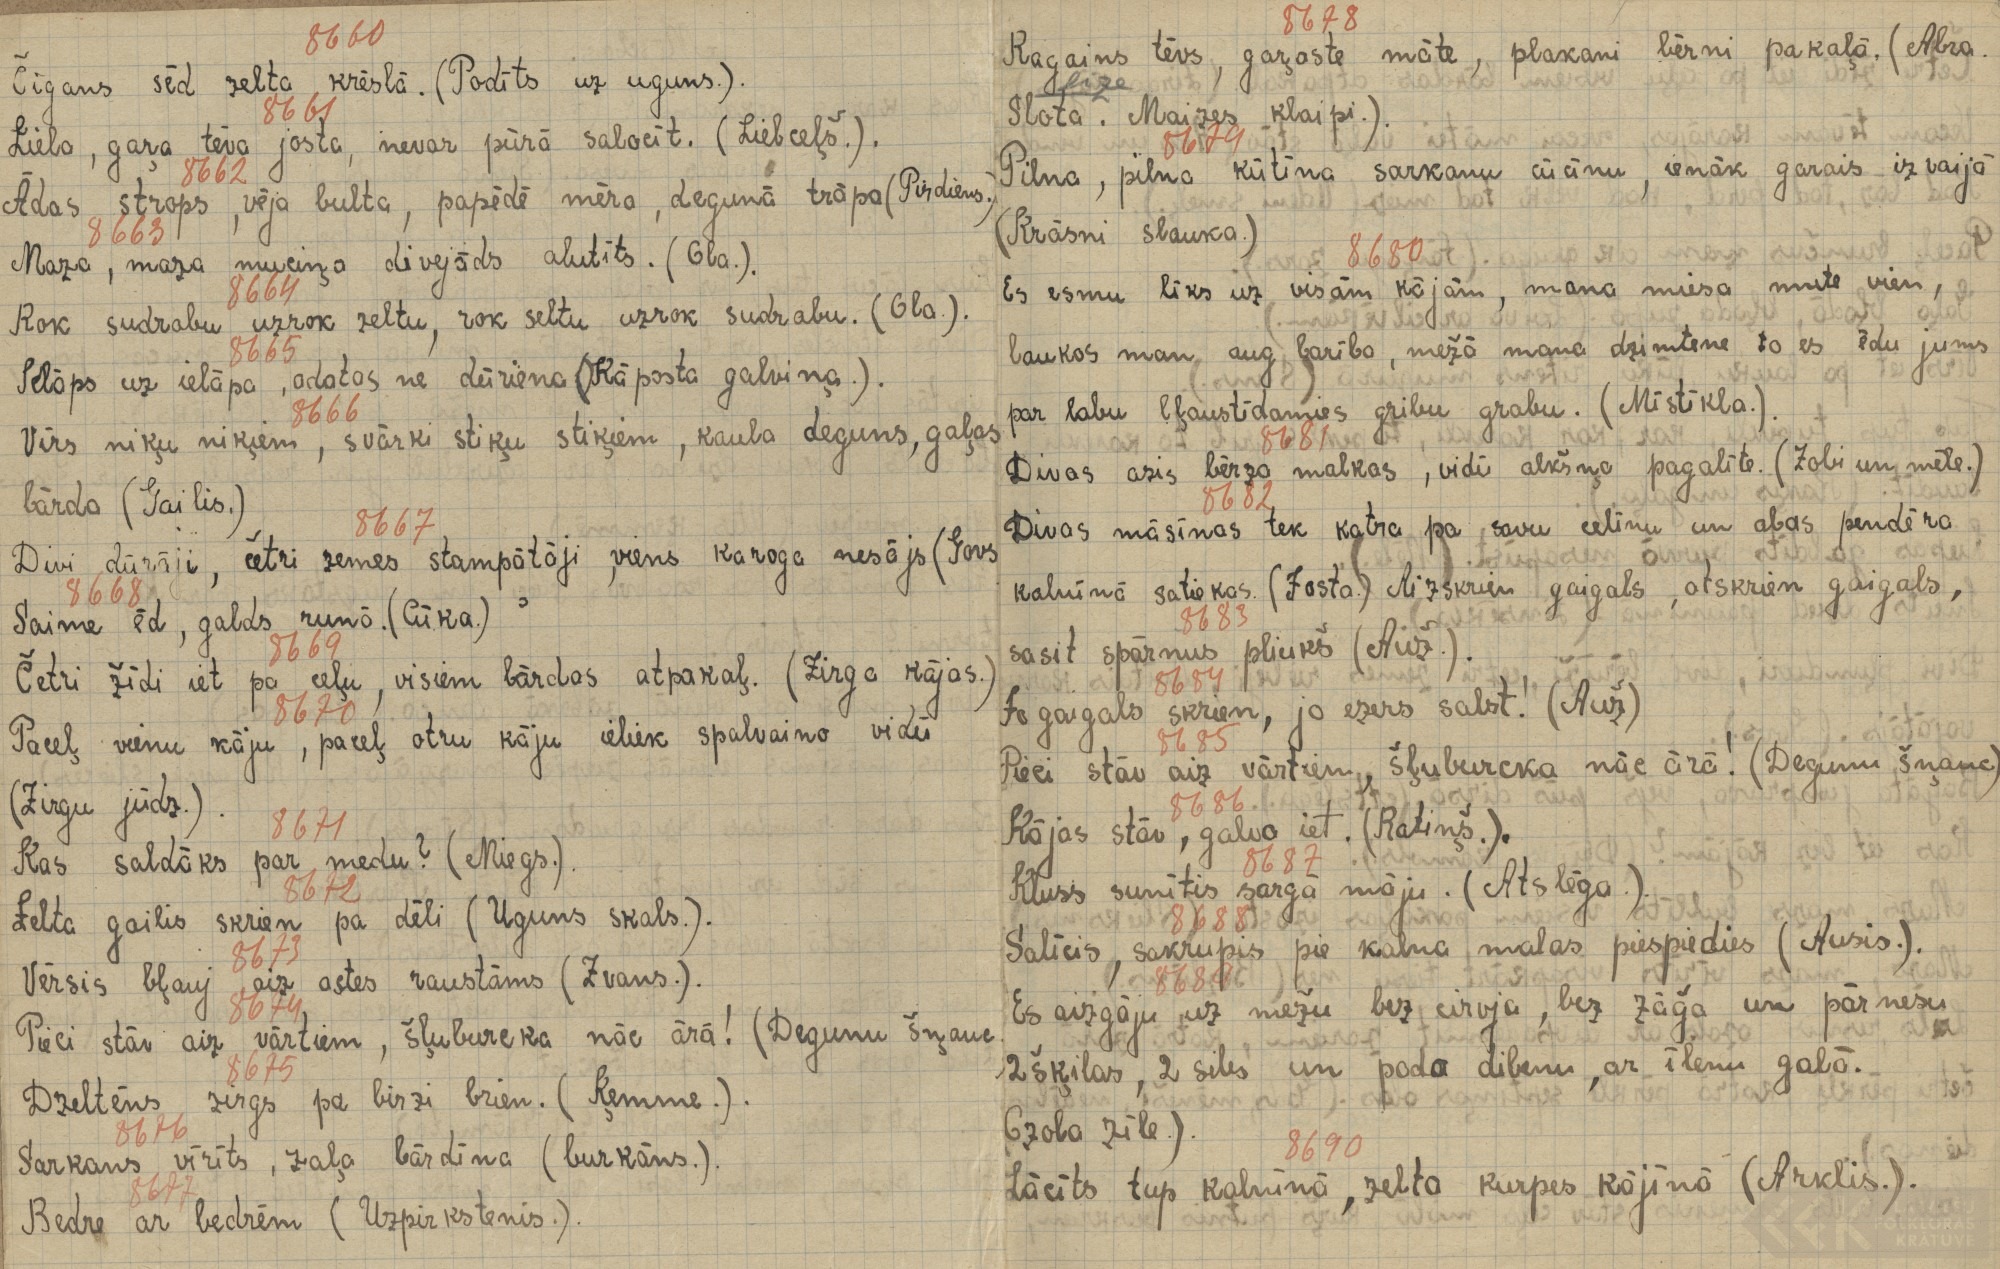 8660
Čigans sēd zelta krēslā. (Podīts uz uguns.).
8661
Liela, gaŗa tēva josta, nevar pūrā salocīt. (Lielceļš.).
8662
Ādas strops, vēja bulta, papēdē mēra, degunā trāpa (Pirdiens.)
8663
Maza, maza muciņa divejāds alutīts. (Ola.).
8664
Rok sudrabu uzrok zeltu, rok seltu uzrok sudrabu. (Ola.).
8665
Ielāps uz ielāpa, adatas ne dūriena (Kāposta galviņa.).
8666
Vīrs niķu niķiem, svārki stiķu stiķiem, kaula deguns, gaļas
bārda (Gailis.)
8667
Divi dūrāji, četri zemes stampātāji, viens karoga nesājs (Govs
8668
Saime ēd, galds runā. (Cūka.)
8669
Četri žīdi iet pa ceļu, visiem bārdas atpakaļ. (Zirga kājas.)
8670
Paceļ vienu kāju, paceļ otru kāju ieliek spalvaino vidū
(Zirgu jūdz.).
8671
Kas saldāks par medu? (Miegs.).
8672
Zelta gailis skrien pa dēli (Uguns skals.).
8673
Vērsis bļauj aiz astes raustāms (Zvans.).
8674
Pieci stāv aiz vārtiem, šļubureka nāc ārā! (Degunu šņauc
8675
Dzeltēns zirgs pa birzi brien. (Ķemme.).
8676
Sarkans vīrīts, zaļa bārdiņa (burkāns.).
8677
Bedre ar bedrēm (Uzpirkstenis.).
8678
Ragains tēvs, gaŗaste māte, plakani bērni pakaļā. (Abra.
lize
Slota. Maizes klaipi.).
8679
Pilna, pilna kūtiņa sarkanu cūciņu, ienāk garais izvaijā
(Krāsni slauka.)
8680
Es esmu līks uz visām kājām, mana miesa mute vien,
laukos man aug barība, mežā mana dzimtene to es ēdu jums
par labu lļaustīdamies gribu grabu. (Mīstīkla.).
8681
Divas asis bērza malkas, vidū alkšņa pagalīte. (Zobi un mēle.)
8682
Divas māsiņas tek katra pa savu celiņu un abas pendēra
kalniņā satiekas. (Josta.) Aizskrien gaigals, atskrien gaigals,
8683
sasit spārnus pliukš (Auž.).
8684
Jo gaigals skrien, jo ezers salst! (Auž)
8685
Pieci stāv aiz vārtiem, šļubureka nāc ārā! (Degunu šņauc)
8686
Kājas stāv, galva iet. (Ratiņš.).
8687
Kluss sunītis sargā māju. (Atslēga.).
8688
Salīcis, sakrupis pie kalna malas piespiedies (Ausis.).
8689
Es aizgāju uz mežu bez cirvja, bez zāģa un pārnesu
2 šķilas, 2 siles un poda dibenu, ar īlenu galā.
Ozola zīle.).
8690
Lācīts tup kalniņā, zelta kurpes kājiņā (Arklis.).